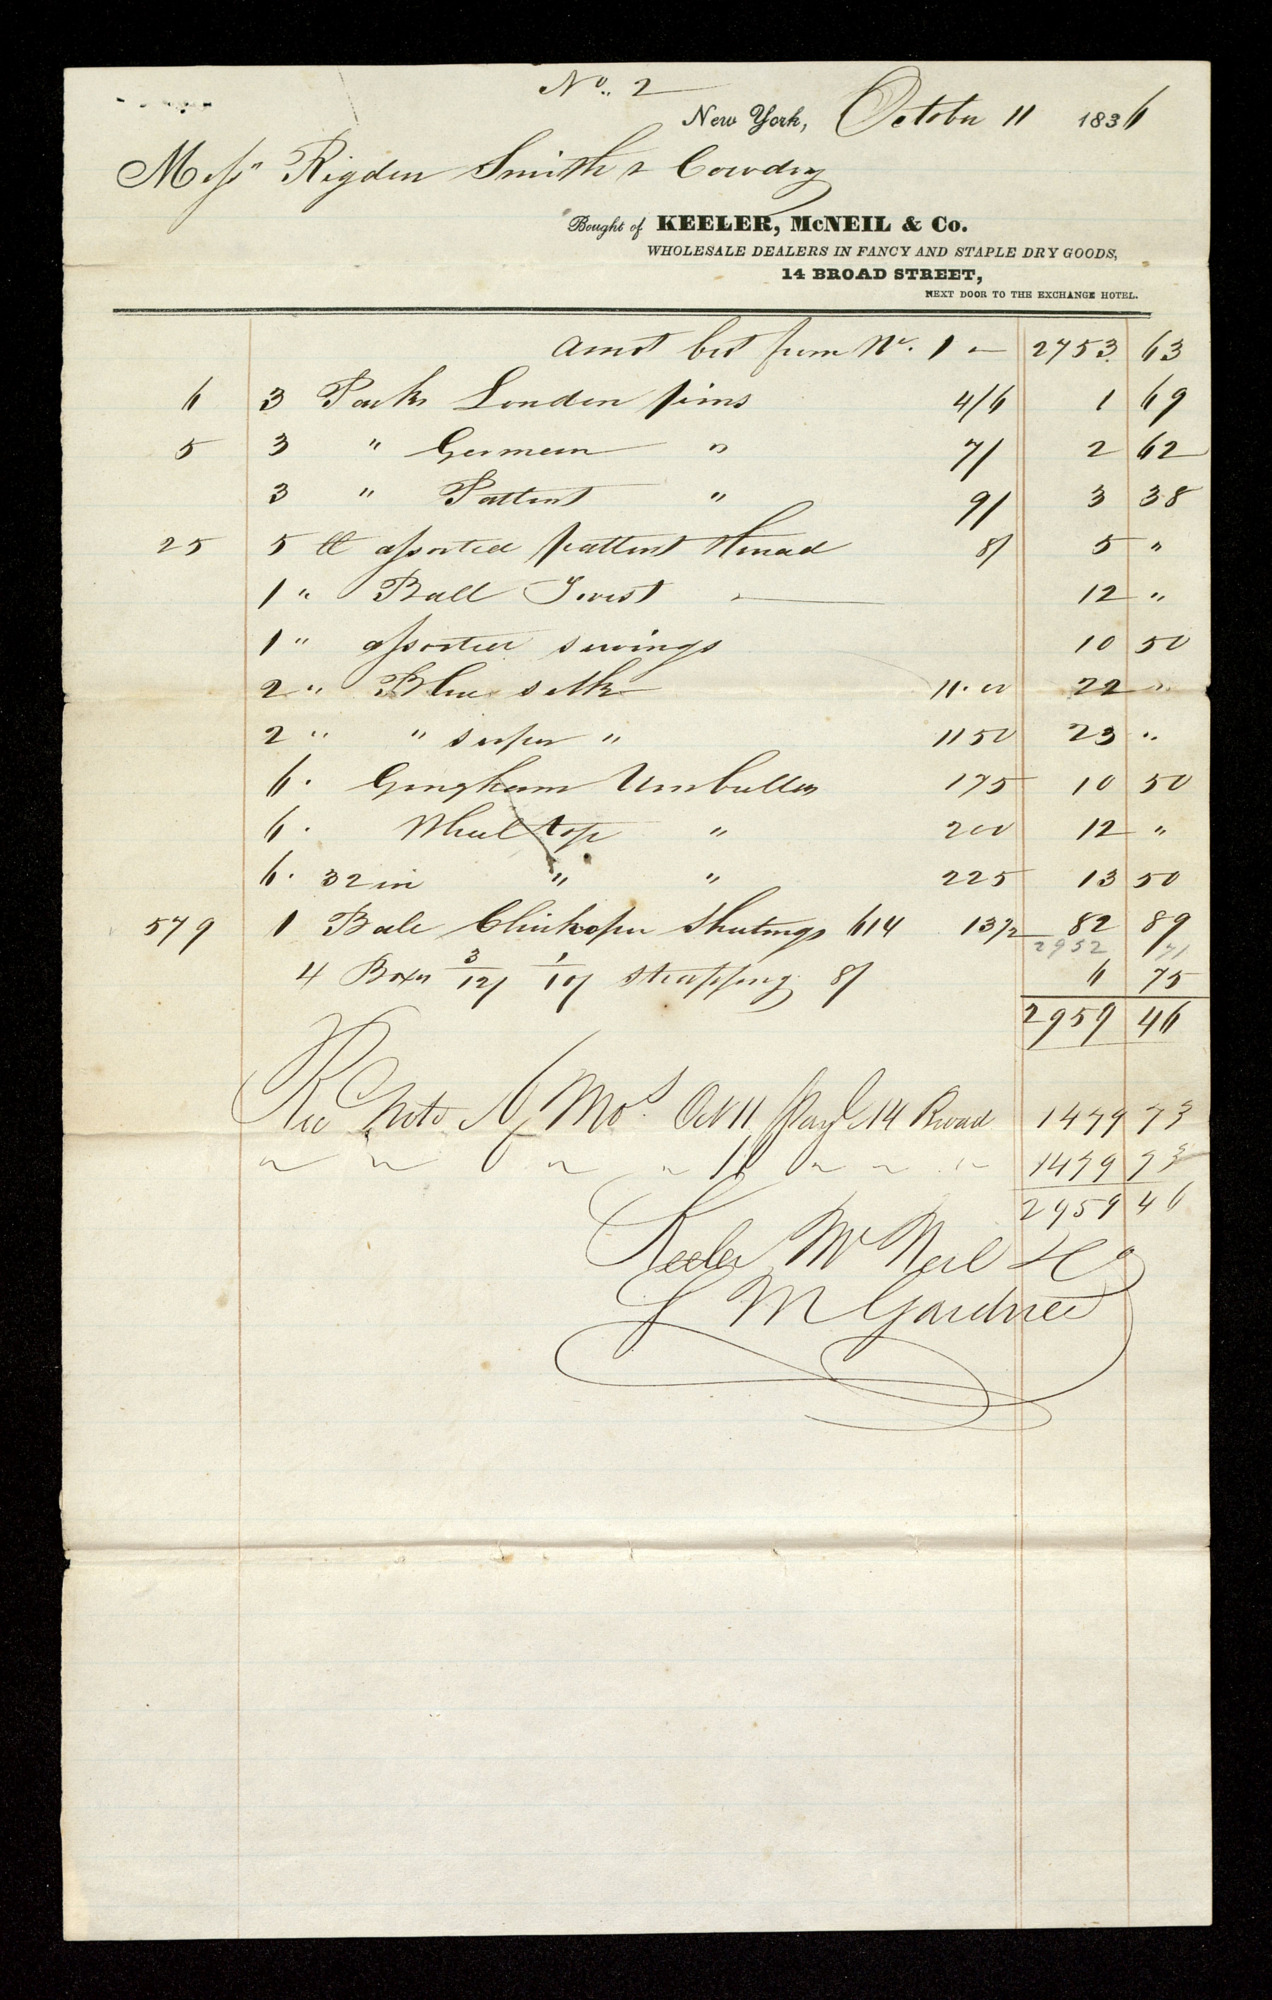 No. 2
New York, October 11 1836
Messrs Rigdon Smith & Cowdry
Bought of KEELER, McNEIL & Co.
WHOLESALE DEALERS IN FANCY AND STAPLE DRY GOODS,
14 BROAD STREET,
NEXT DOOR TO THE EXCHANGE HOTEL.
Amot bot from No. 1 2753 63
6 3 Packs London pins 4/6 1 69
5 3 " German " 7/ 2 62
3 " Pattent " 9/ 3 38
25 5 lb assorted pattent thread 8/ 5 "
1 " Ball Twist 12 "
1 " assorted sewings 10 50
2 " Blue silk 11.00 22 "
2 " " super " 1150 23 "
6 . Gingham Umbullas 175 10 50
6 . Wheel top " 200 12 "
6 . 32 in " " 225 13 50
579 1 Bale Chickopee Shutings 614 13½ 82 89
2952 71
4 Boxes 3/12/ 1/10/ strapping 8/ 6 75
2959 46
Rec Note 6 Mos Oct 11 Payl 14 Broad 1479 73
" " " " " 11 " " " 1479 73
2959 46
Keeler McNeil & Co
L M Gardner